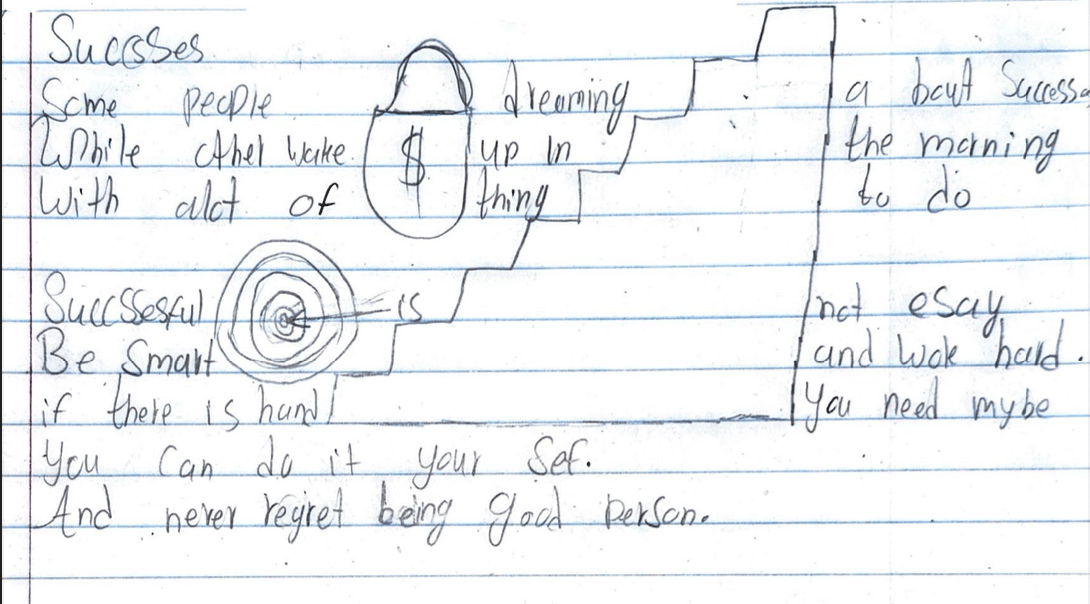 Succsses
Some people dreaming a bout Success
While other wake up in the morning
With alot of $ thing to do
Succssesful is not esay
Be Smart and wok hard.
if there is hand You need mybe
You Can do it your Sef.
And never regret being good person.